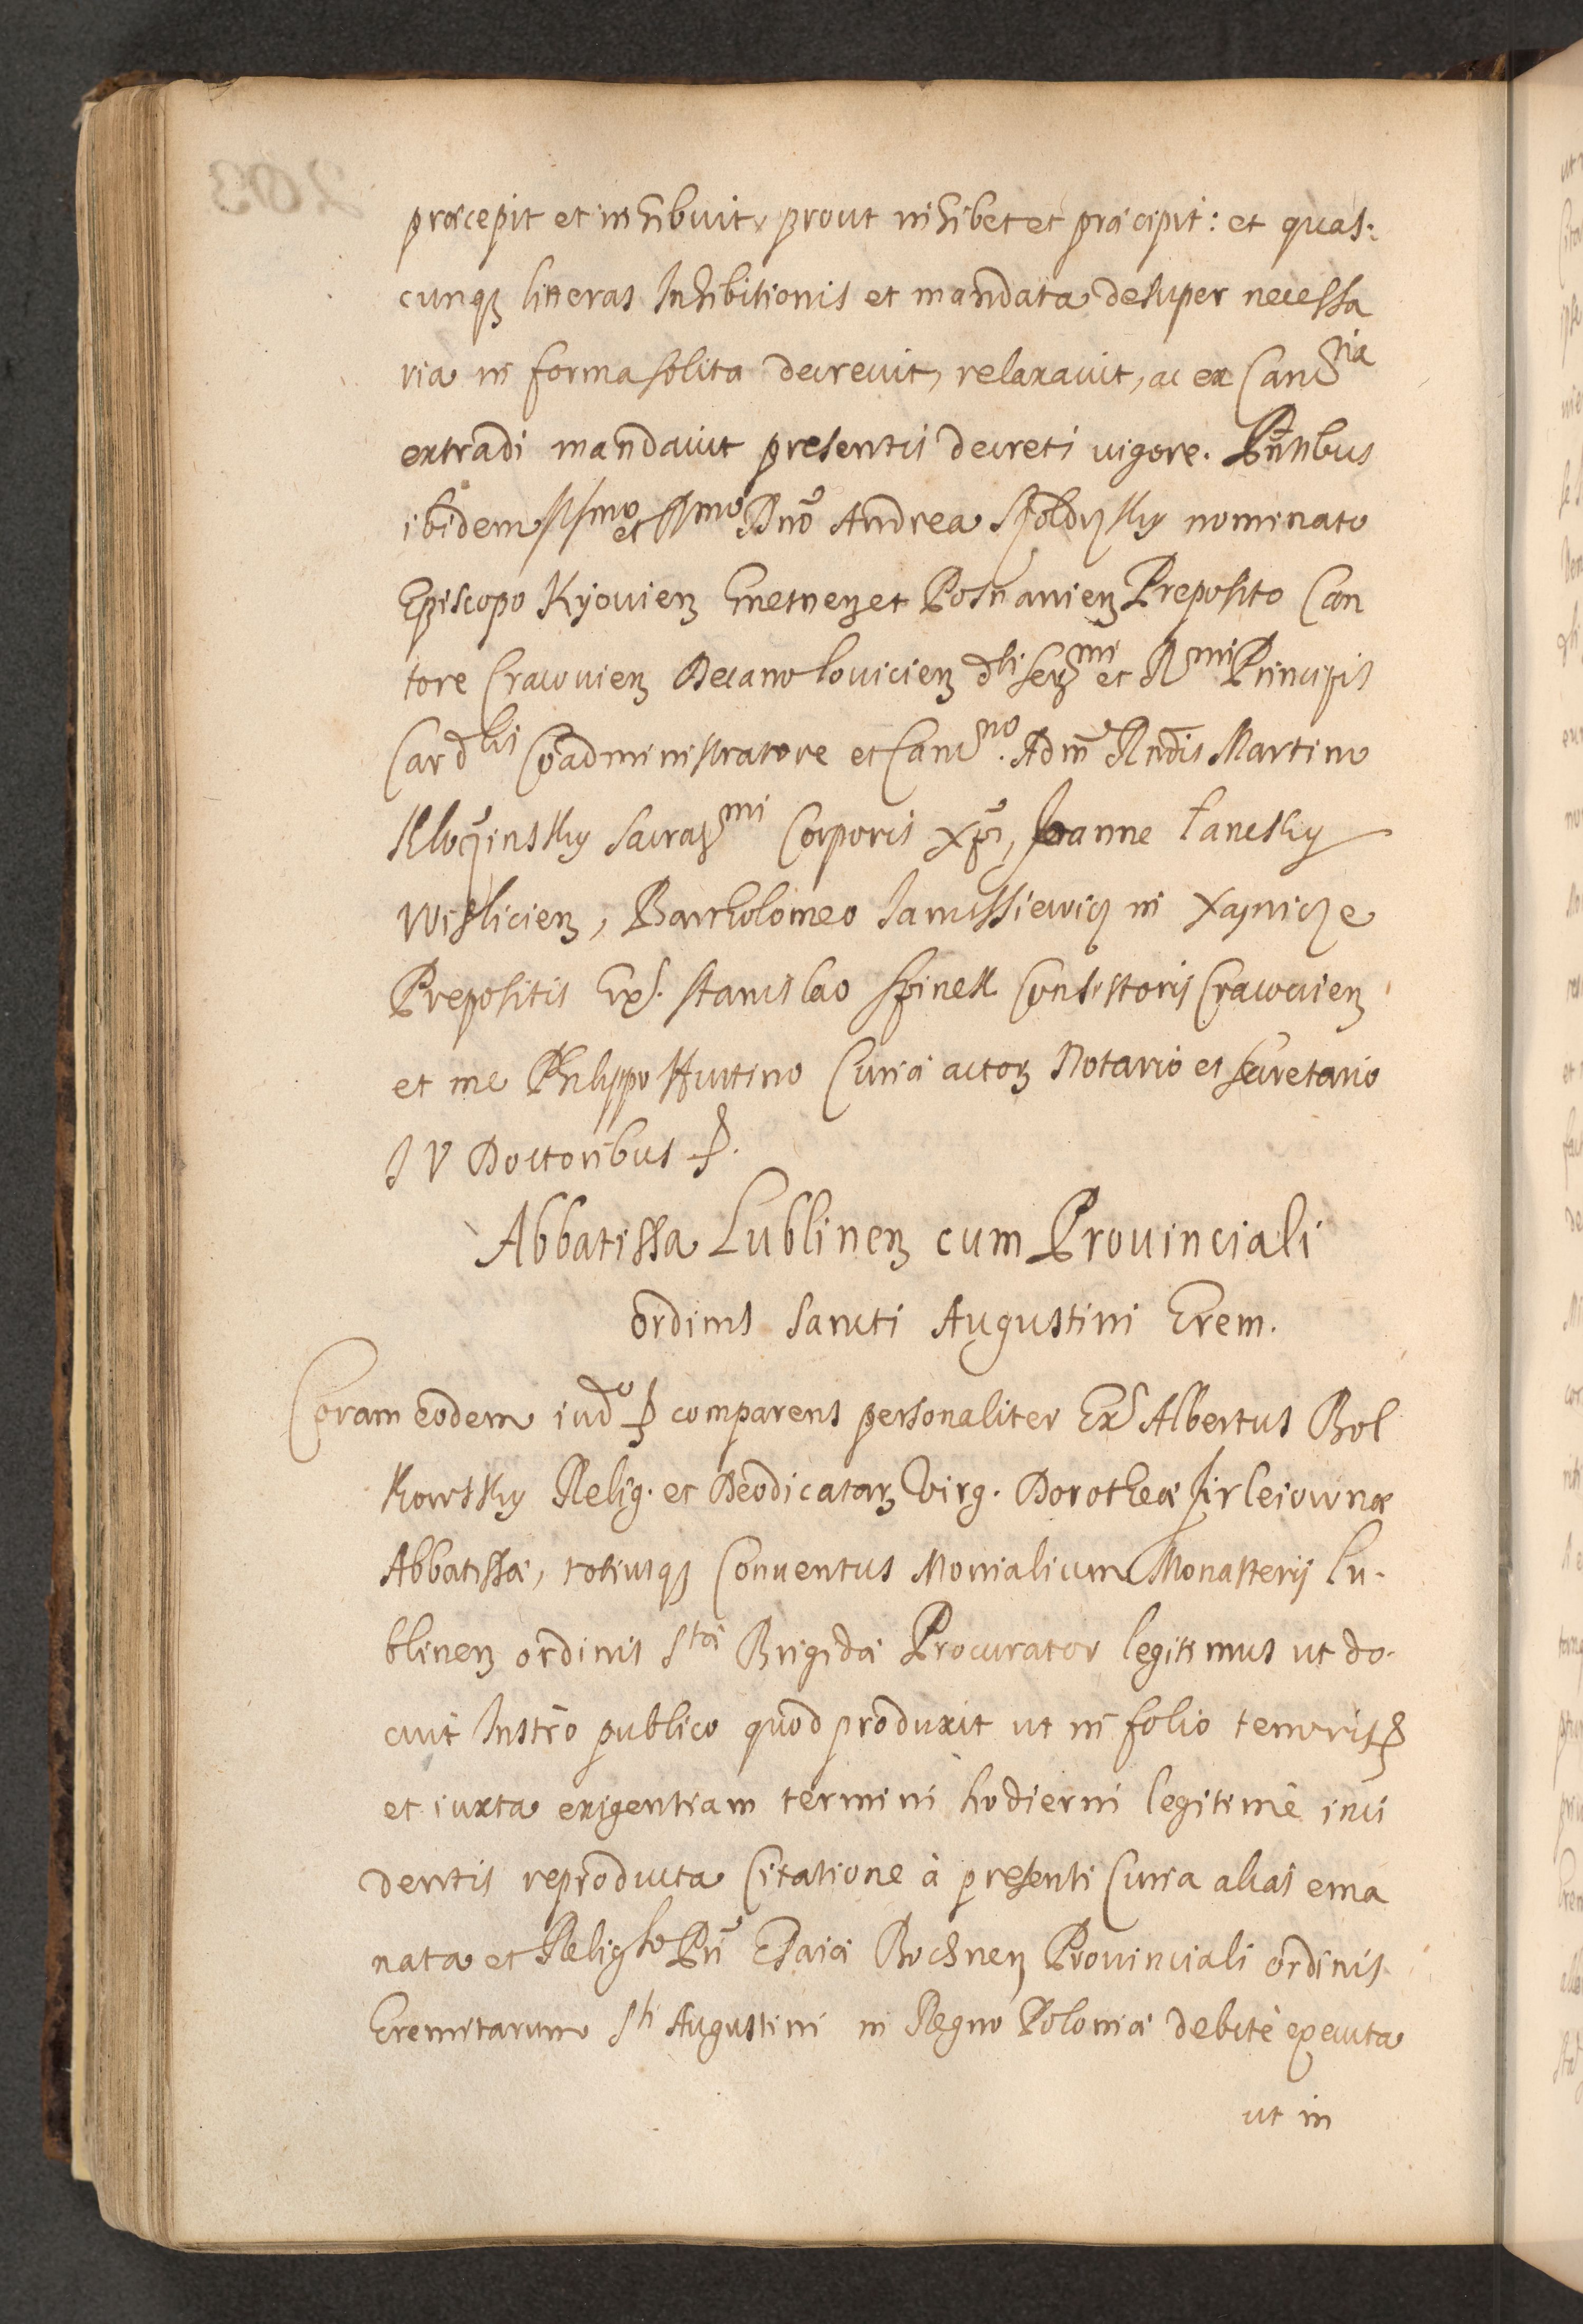 præcepit et inhibuit, prout inhibet et præcipit: et quas-
cunq́ʒ litteras Inhibitionis et mandata desuper necessa
ria in forma solita decreuit, relaxauit, ac ex Canc^ria
extradi mandauit presentis decreti vigore. Pn̄tibus
ibidem Illmo et Rmo Dno Andrea Szoldrzsky nominato
Episcopo Kyouienʒ Gnetnenʒ et Posnanienʒ Preposito Can
tore Cracouienʒ Decano Louicienʒ d^li Serʒ^mi et R^mi Principis
Card^lis Coadministratore et Canc^no. Adm̄ Rndis Martino
Kloczinsky Sacraʒ^mi Corporis Xpi, Joanne Lancsky
Wislicienʒ, Bartholomeo Janussiewicz in Xaznicze
Prepositis Exs. Stanislao Szinek Consistorij Cracouienʒ
et me Philippo Huttino Curiæ actorʒ Notario et secretario
J V Doctoribus ꝑ.
Abbatissa Lublinenʒ cum Prouinciali
ordinis Sancti Augustini Erem.
Coram eodem iud^o ꝑ comparens personaliter Ex^s Albertus Bol
kowsky Relig. et Deodicatarʒ Virg. Dorotheæ Firleiownæ
Abbatissæ, totiusqʒ Conuentus Monialium Monasterij Lu-
blinenʒ ordinis S^tæ Brigidæ Procurator legitimus ut do-
cuit Instrō publico quod produxit ut in folio tenoris ꝑ
et iuxta exigentiam termini hodierni legitimè inci
dentis reproducta Citatione à presenti Curia alias ema
nata et Relig^so Prī Esaiæ Bochnenʒ Prouinciali ordinis
Eremitarum S^ti Augustini in Regno Poloniæ debitè executa
ut in